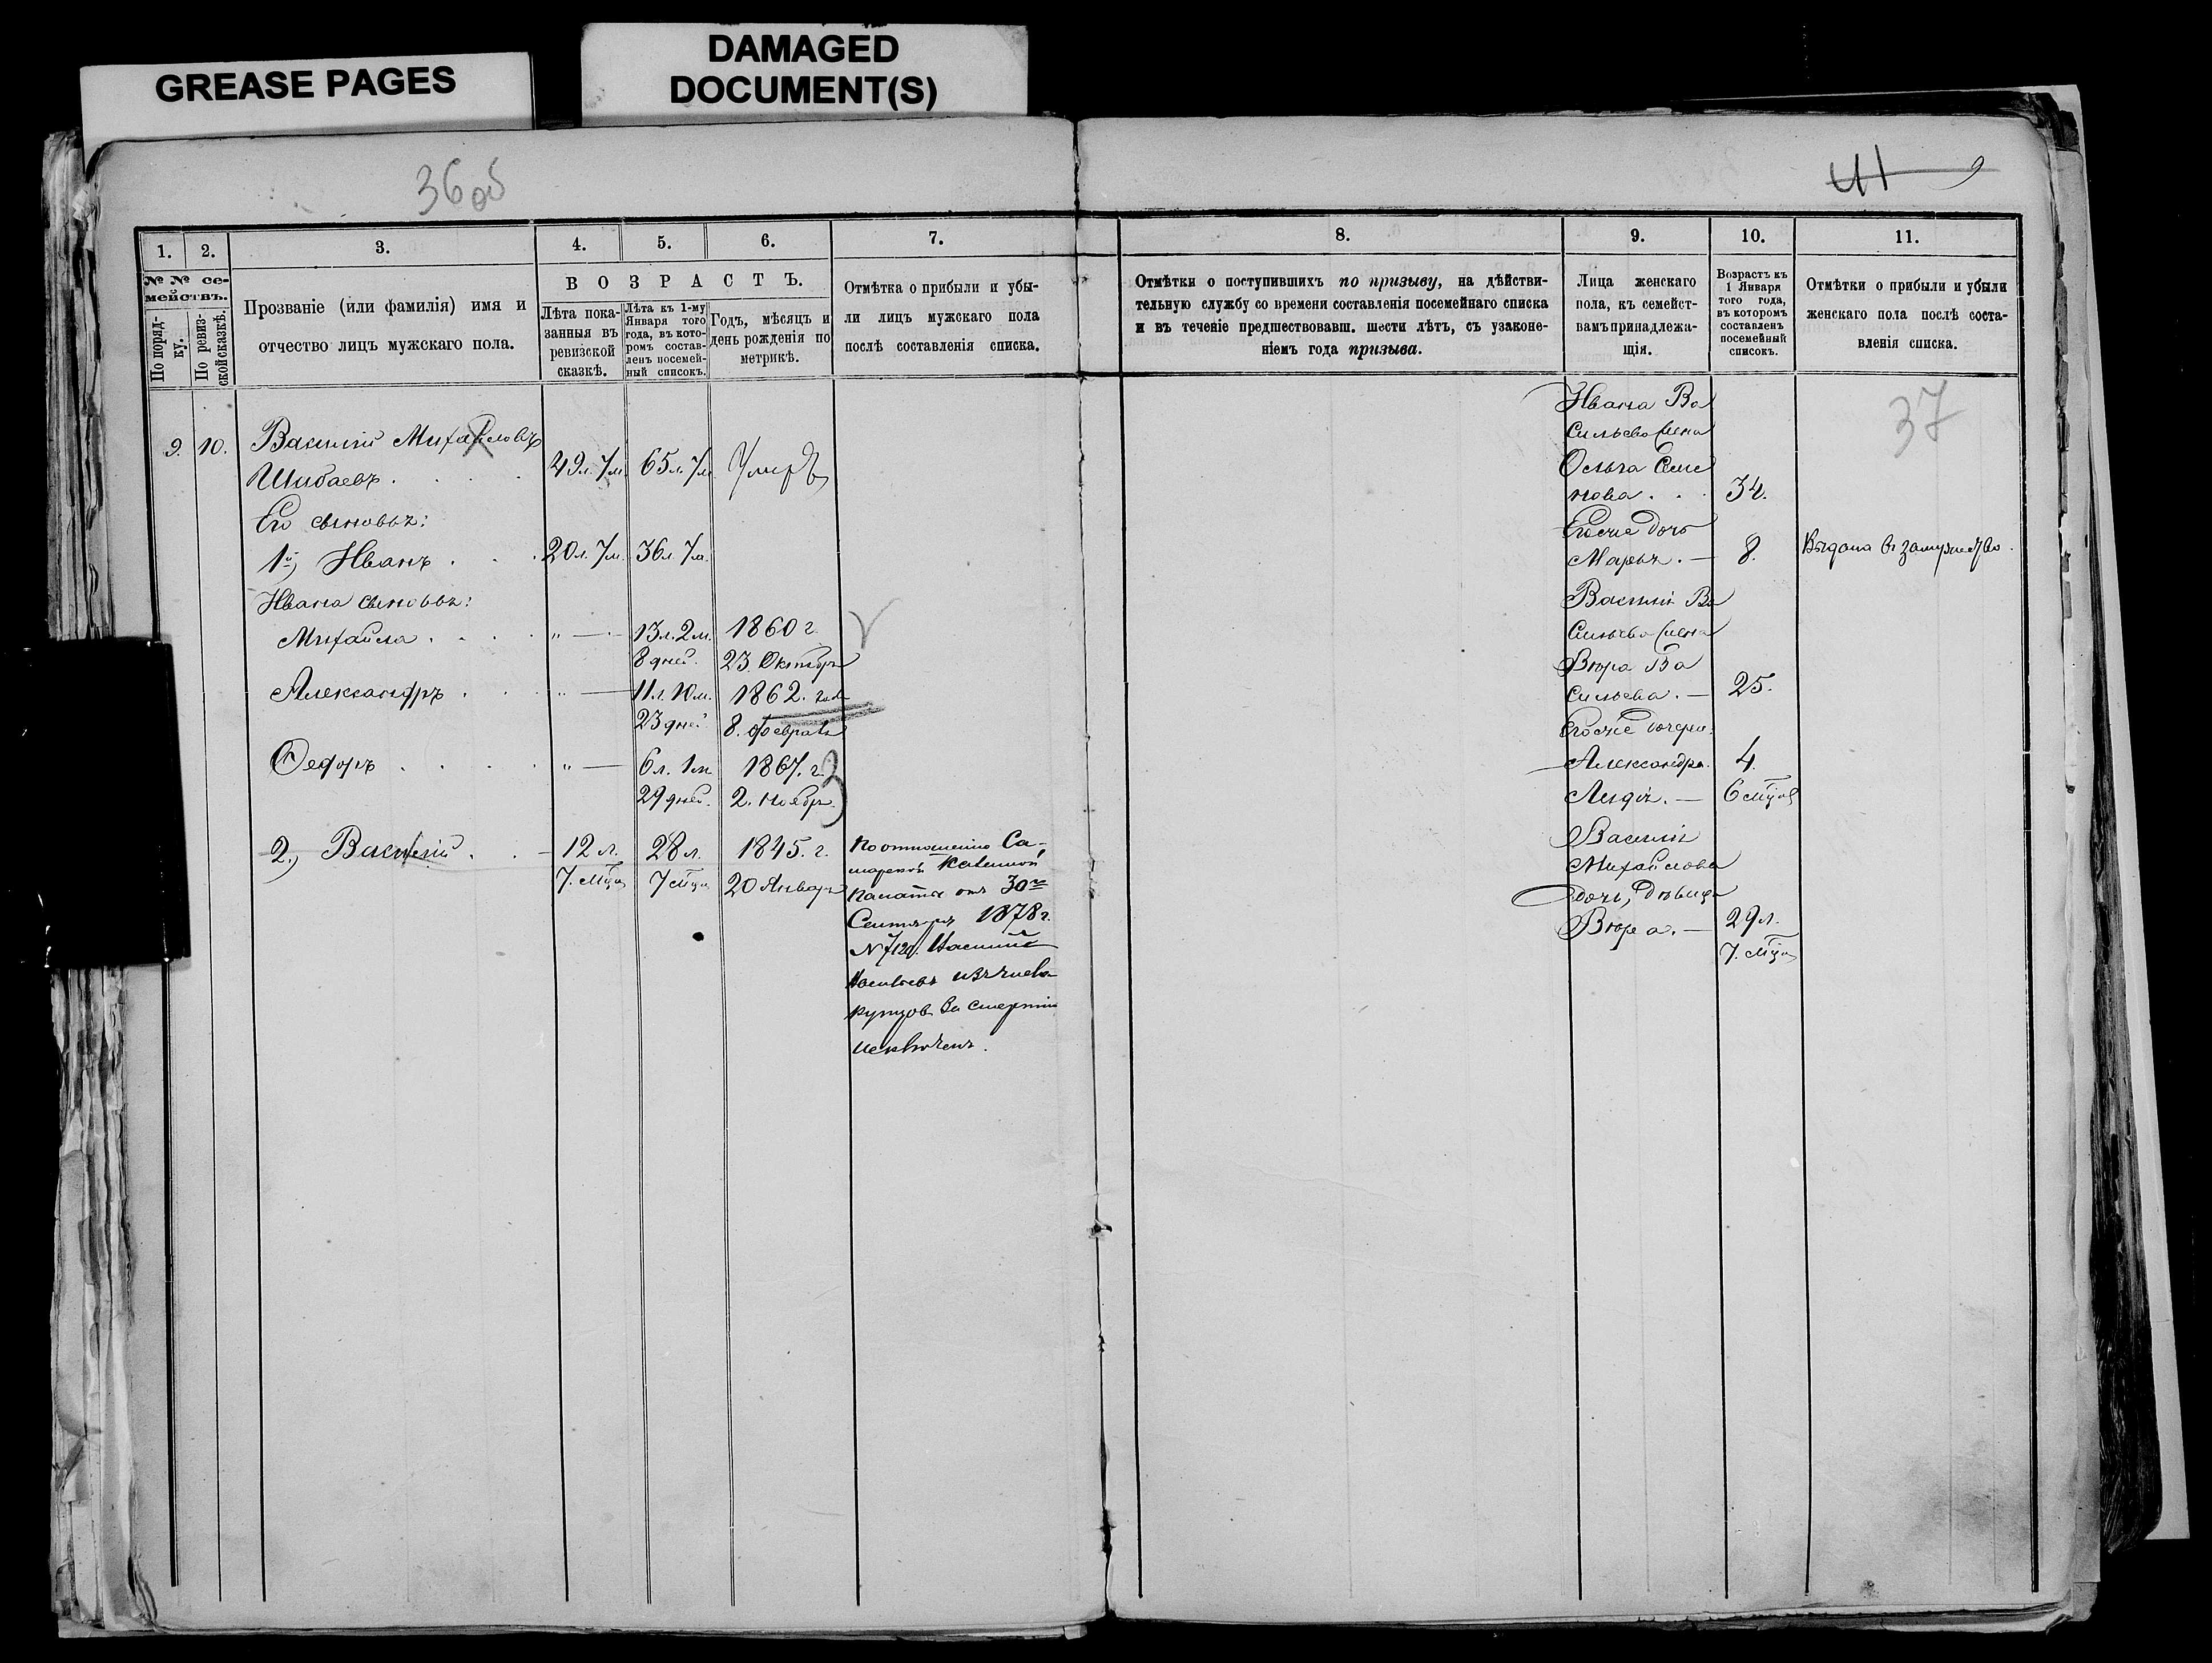 GREASE PAGES
DAMAGED
DOCUMENT(S)
36 об
41
1.
2.
3.
4.
5.
6.
7.
№ № се-
мействъ.
По поряд-
ку.
По ревиз-
ской сказкѣ.
Прозваніе (или фамилія) имя и
отчество лицъ мужскаго пола.
ВОЗРАСТЪ.
Лѣта пока-
занныя въ
ревизской
сказкѣ.
Лѣта къ 1-му
Января того
года, въ кото-
ромъ состав-
ленъ посемей-
ный списокъ.
Годъ, мѣсяцъ и
день рожденія по
метрикѣ.
Отмѣтка о прибыли и убы-
ли лицъ мужскаго пола
послѣ составленія списка.
9. 10. Василій Михайловъ
Шибаевъ . . . . 49 л. 7 м. 65 л. 7 м. Умеръ
Его сыновья:
1й, Иванъ . . . 20 л. 7 м. 36 л. 7 м.
Ивана сыновья:
Михайла . . . . „ — 13 л. 2 м. 1860 г.
8 дней. 23. Октября
Александръ . . . „ — 11 л. 10 м. 1862. года
23 дней 8. Февраля
Федоръ . . . . „ — 6 л. 1 м. 1867. г.
29 дней. 2. Ноября
2., Василій . . — 12 л. 28 л. 1845. г.
7. мѣся 7 мѣся 20 Января
По отношенію Са-
марской Казенной
Палаты отъ 30го
Сентября 1878 г.
№ 7120. Василий
Васильевъ изъ числа
купцовъ за смертію
исключенъ.
8.
9.
10.
11.
Отмѣтки о поступившихъ по призыву, на дѣйстви-
тельную службу со времени составленія посемейнаго списка
и въ теченіе предшествовавш. шести лѣтъ, съ узаконе-
ніемъ года призыва.
Лица женскаго
пола, къ семейст-
вамъ принадлежа-
щія.
Возрастъ къ
1 Января
того года,
въ которомъ
составленъ
посемейный
списокъ.
Отмѣтки о прибыли и убыли
женскаго пола послѣ соста-
вленія списка.
37
Ивана Ва
сильева жена
Ольга Семе
нова . . . 34.
дочь
Марья. — 8. Выдана въ замужество.
Василія Ва
сильева жена
Вѣра Ва
сильева. — 25.
дочери:
Александра. 4.
Лидія. — 6 мѣся
Василія
Михайлова
дочь, дѣвица
Вѣра. — 29 л.
7. мѣся